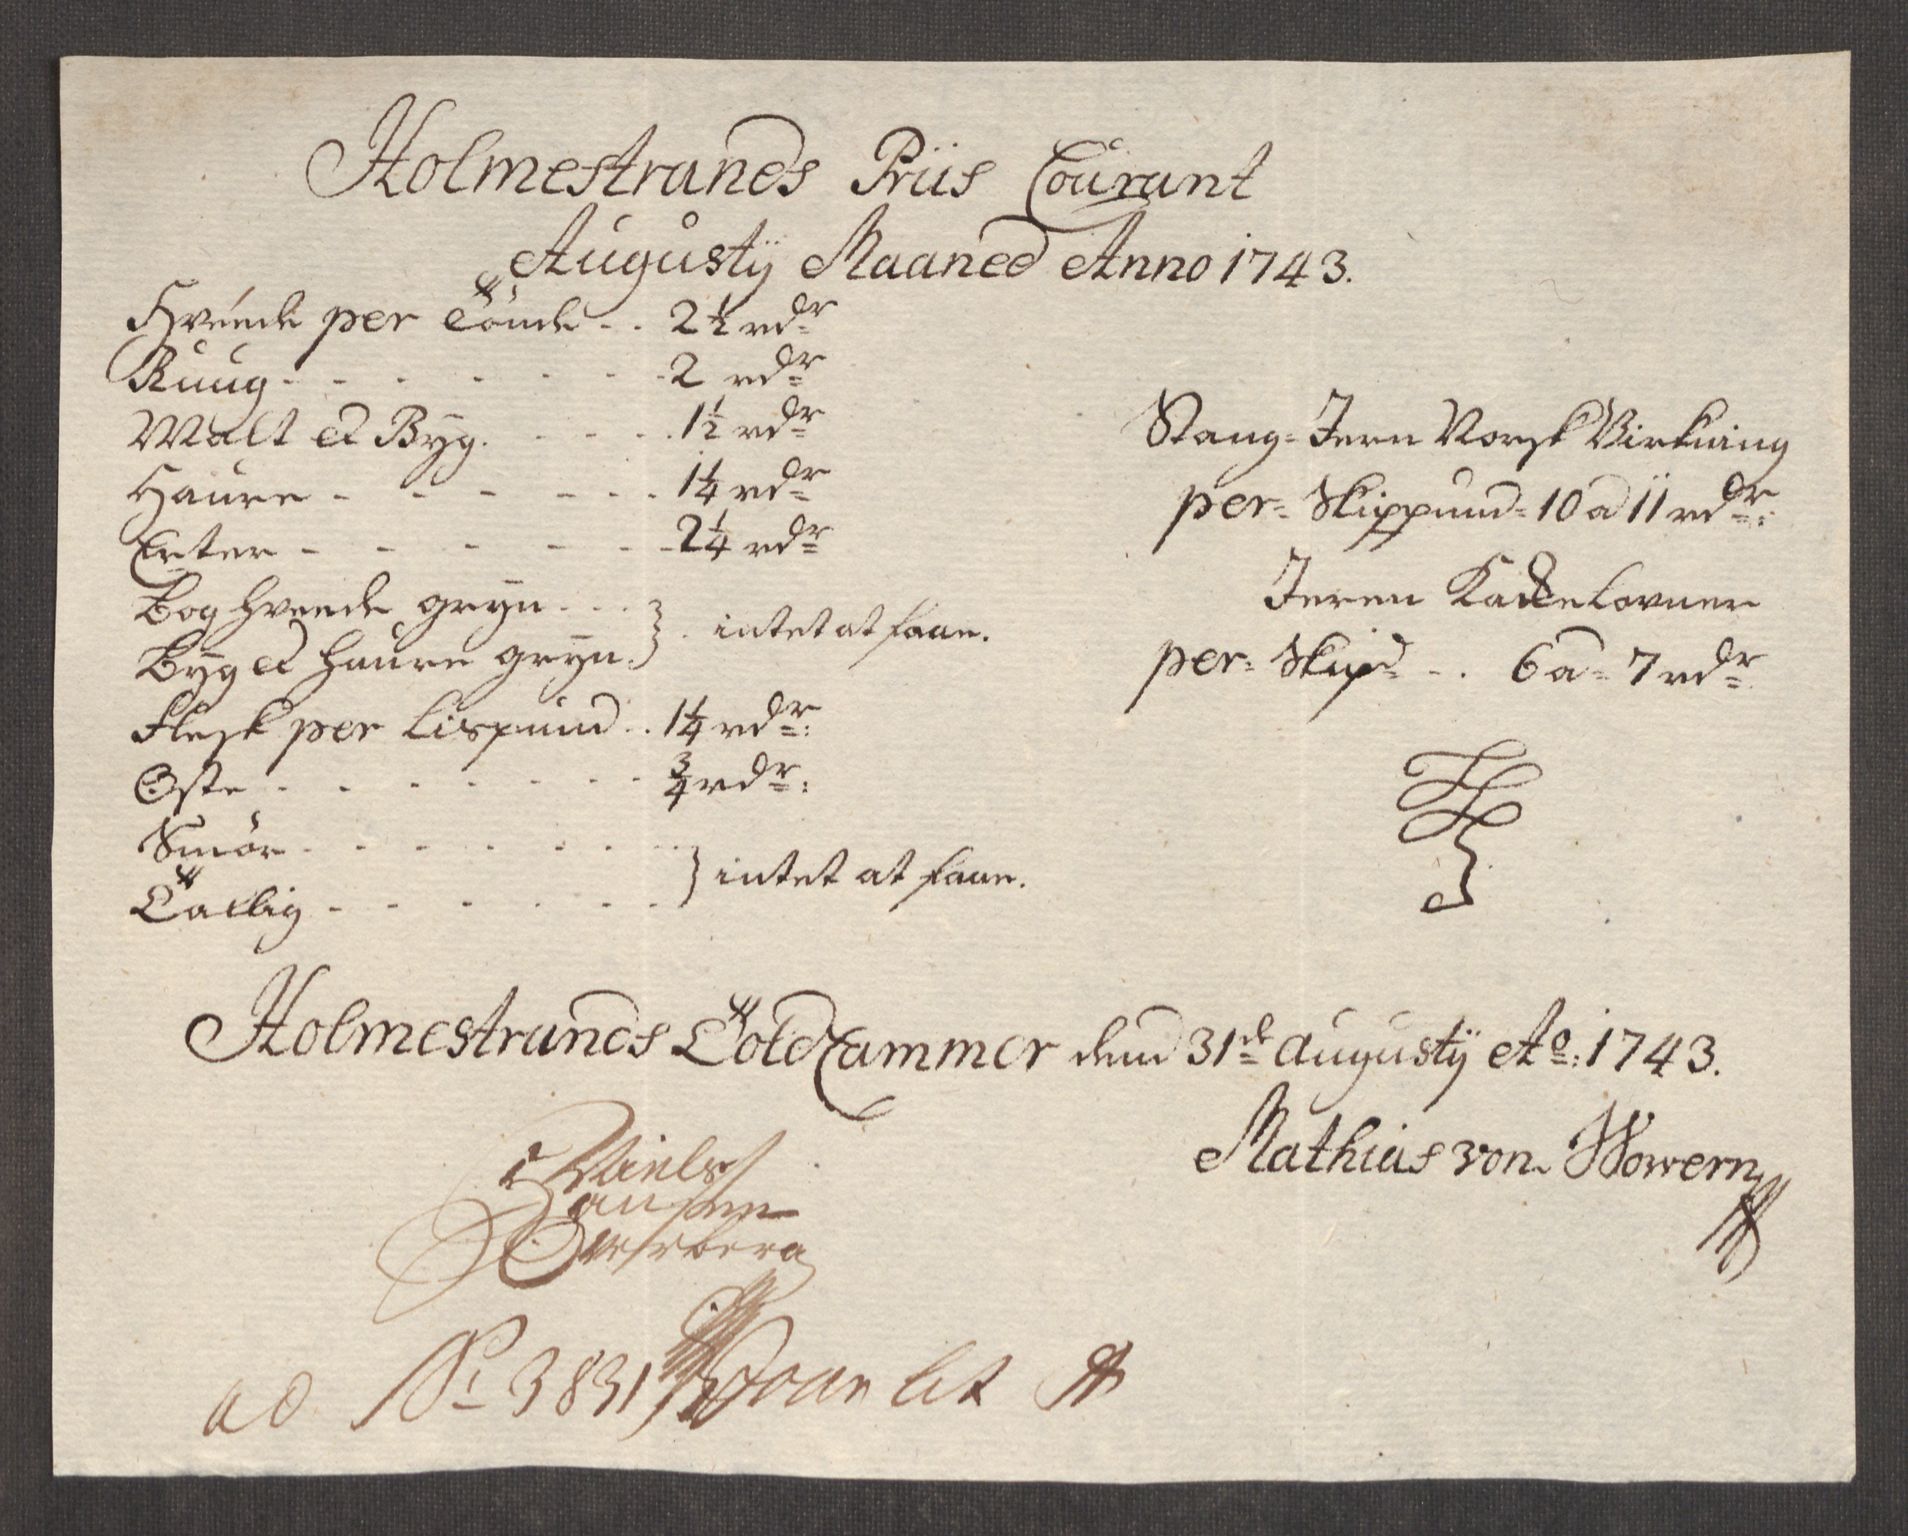 Holmestrands Priis Courant
Augustij Maaned Anno 1743.
Hveede per Tönde .. 2½ rdr
Ruug 2 rdr
Malt et Byg. 1½ rdr
Haure 1¼ rdr
Erter 2¼ rdr
Boghveede gryn
Byg et haure gryn } intet at faae.
Flesk per Lispund .. 1¼ rdr:
Oste ¾ rdr:
Smör
Tallig } intet at faae.
Stang-Jern Norsk Virkning
per Skippund 10 a 11 rdr:
Jeren Kackelovner
per Skipd .. 6 a 7 rdr
Holmestrands ToldCammer dend 31de Augustij Ao: 1743.
Mathias von Wowern
Niels
Hansen
Overberg
ad No 3831 Lit A